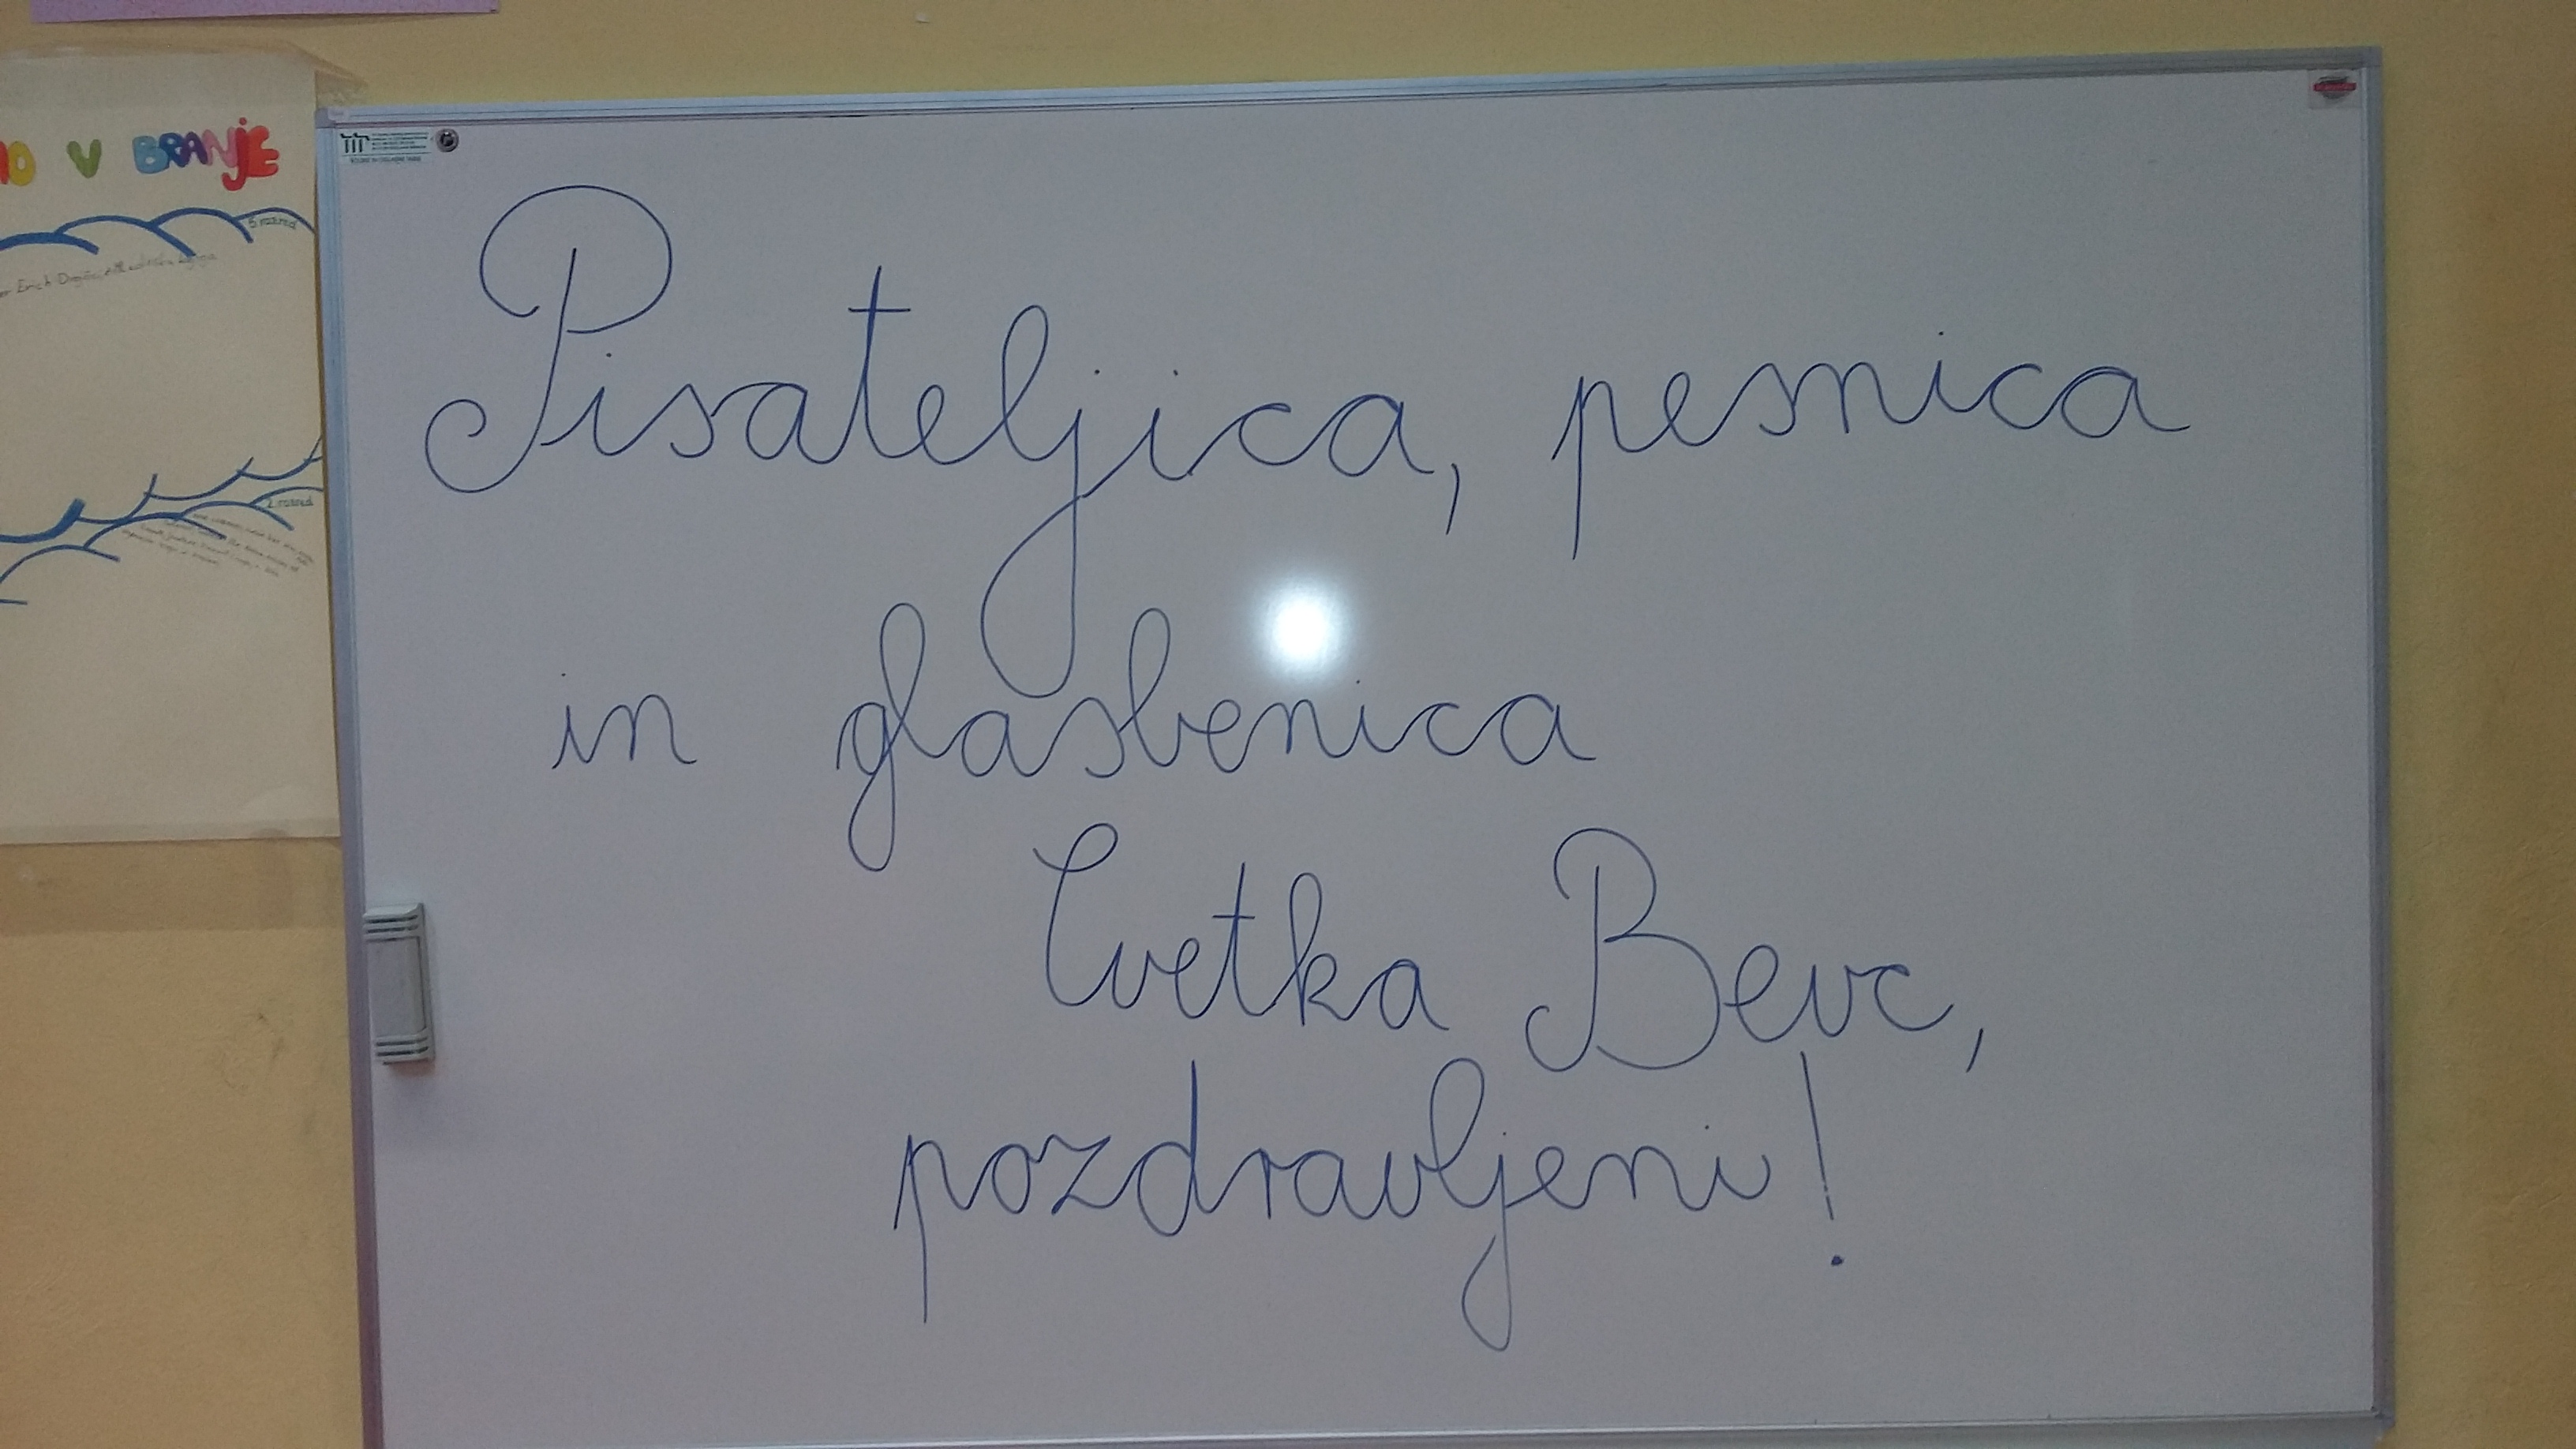 V BRANJE
5. razred
Erich
2. razred
Pisateljica, pesnica
in glasbenica
Cvetka Bevc,
pozdravljeni!